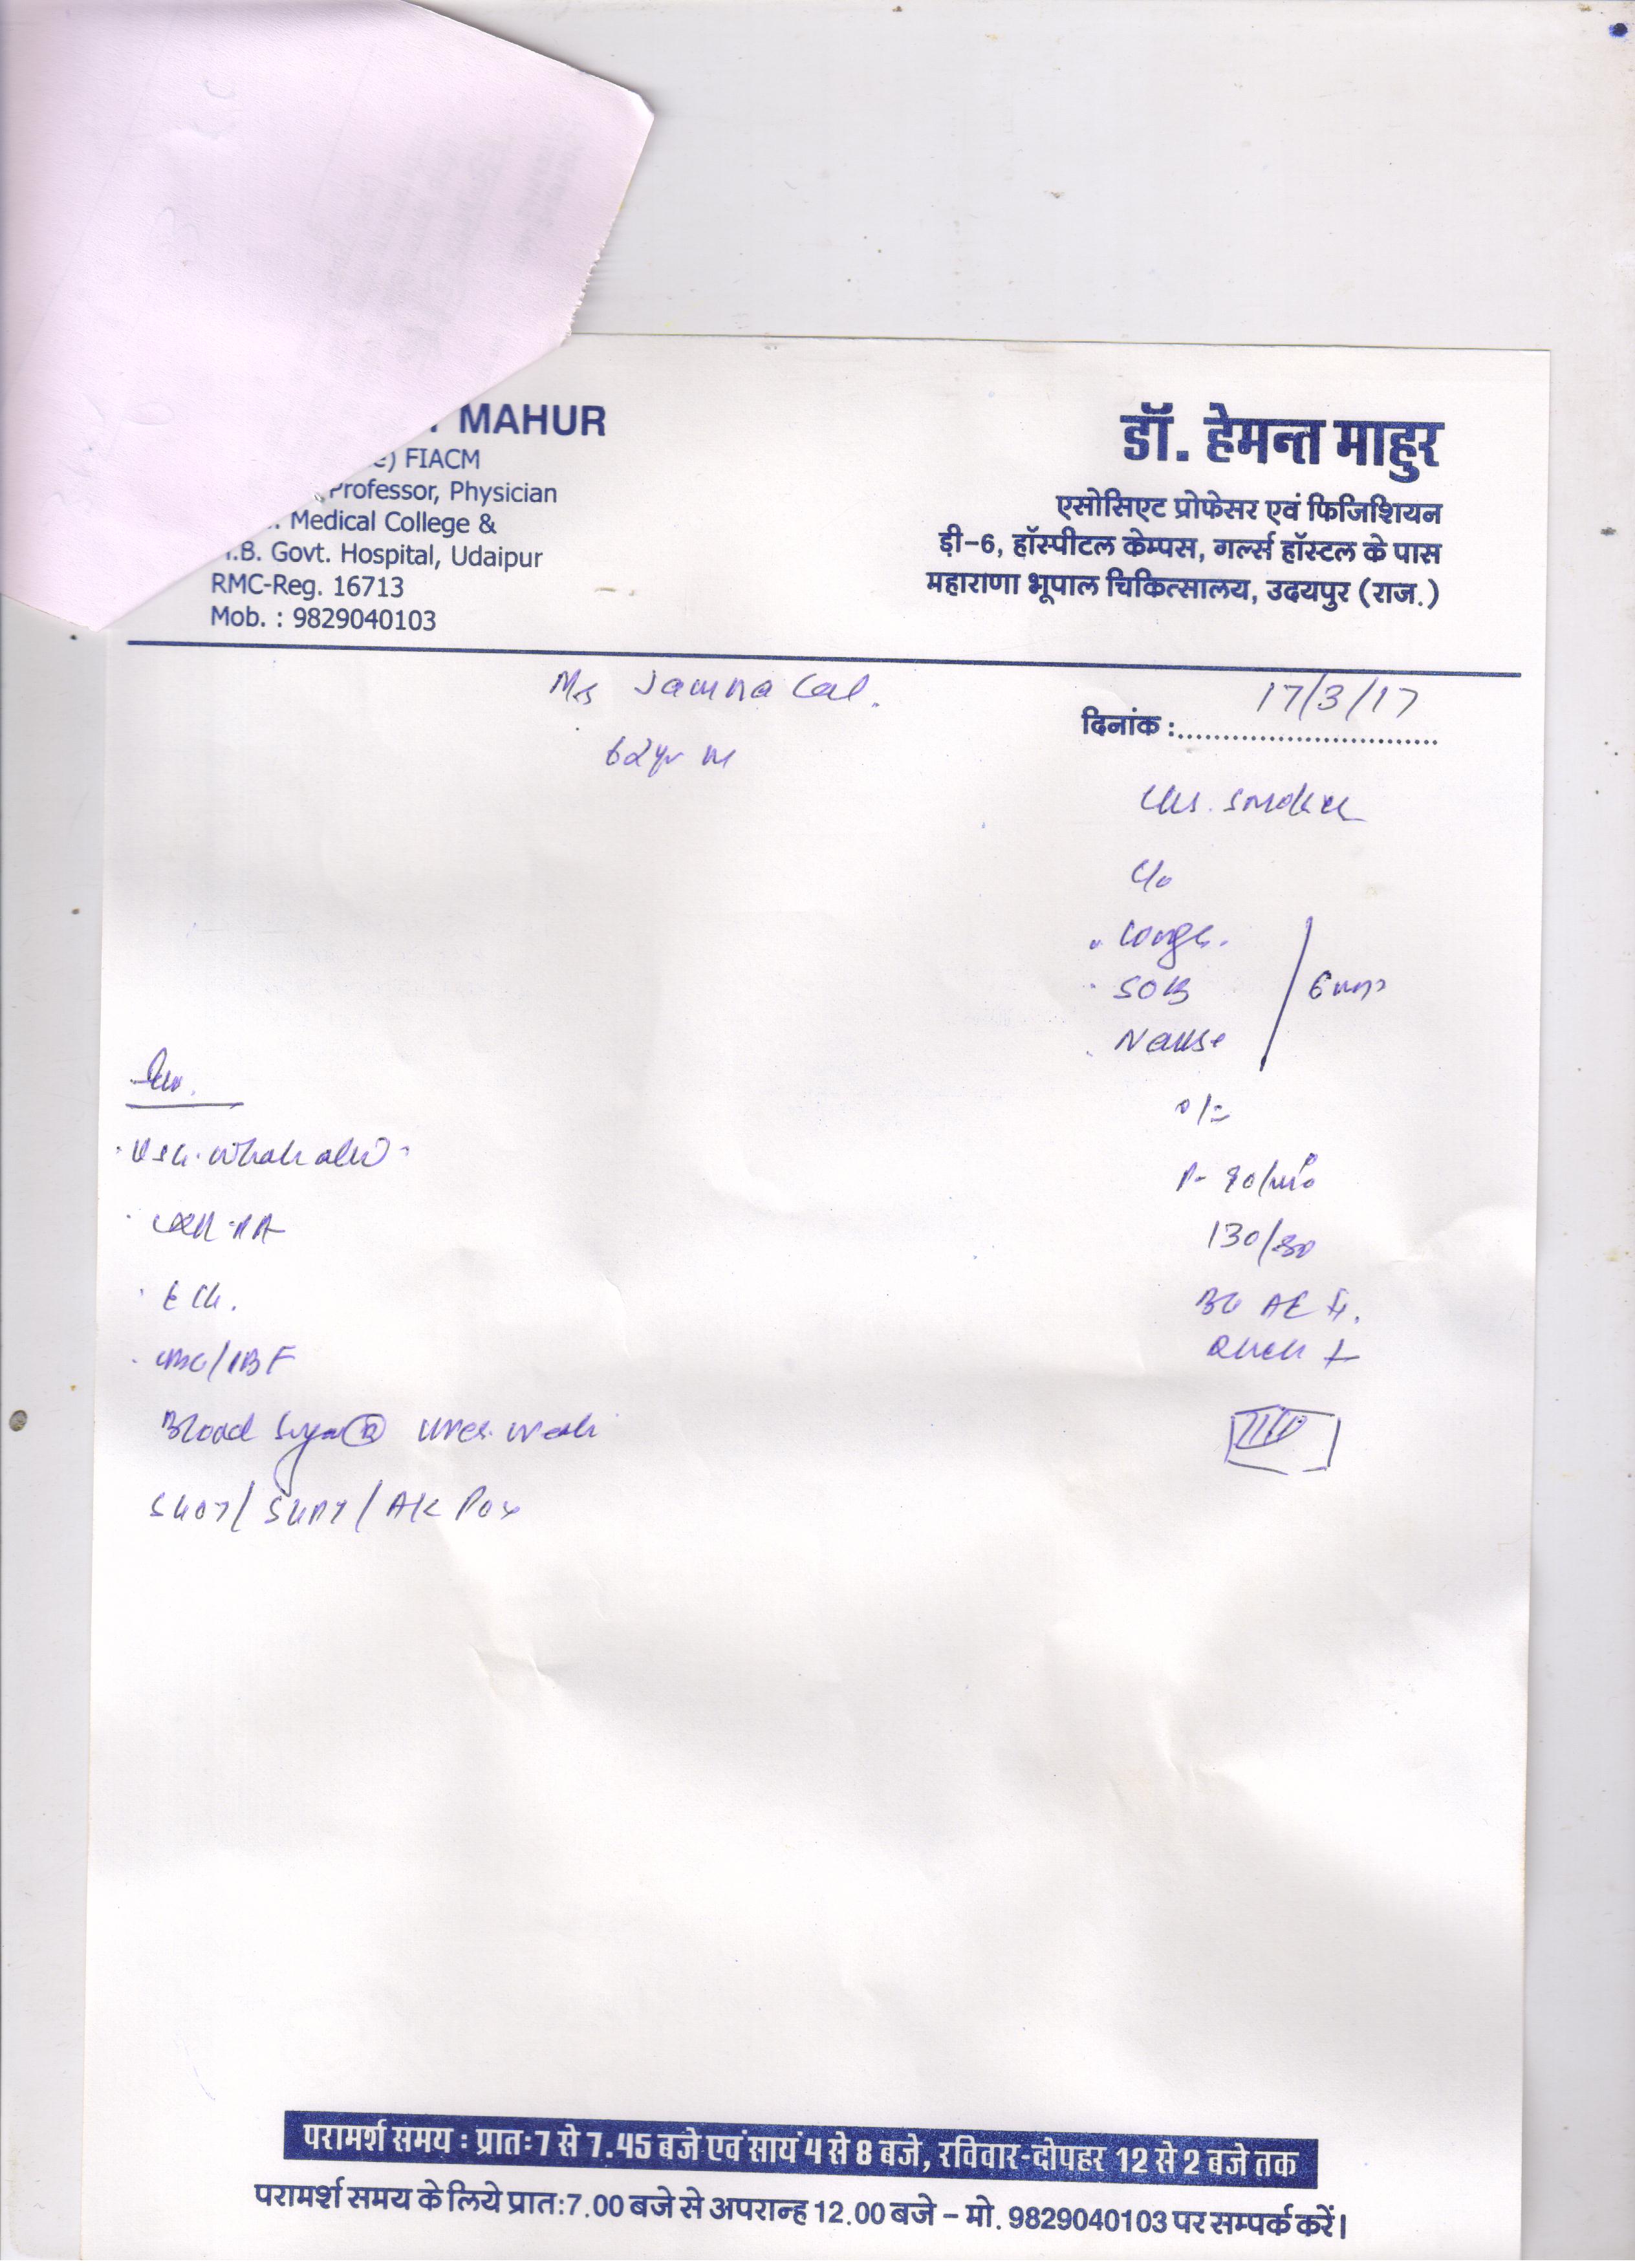 MAHUR
) FIACM
Professor, Physician
Medical College &
.B. Govt. Hospital, Udaipur
RMC-Reg. 16713
Mob. : 9829040103
डॉ. हेमन्त माहुर
एसोसिएट प्रोफेसर एवं फिजिशियन
ड़ी-6, हॉस्पीटल केम्पस, गर्ल्स हॉस्टल के पास
महाराणा भूपाल चिकित्सालय, उदयपुर (राज.)
Jamna Lal.
दिनांक : 17/3/17
62 yr M
smoker
C/o
SOB
Nause
O/E
P- 90/min
130/80
CXR PA
ECG.
CBC/PBF
Blood Suga (R)
SGOT/SGPT/
परामर्श समय : प्रातः7 से 7.45 बजे एवं सायं 4 से 8 बजे, रविवार-दोपहर 12 से 2 बजे तक
परामर्श समय के लिये प्रातः7.00 बजे से अपरान्ह 12.00 बजे – मो. 9829040103 पर सम्पर्क करें।